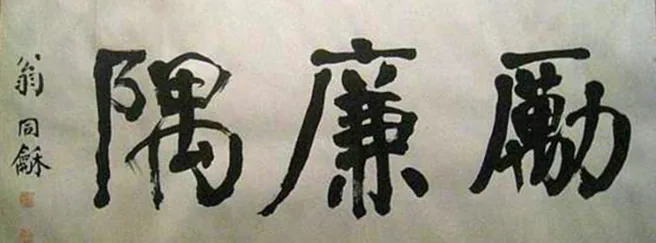 勵廉隅
翁同龢